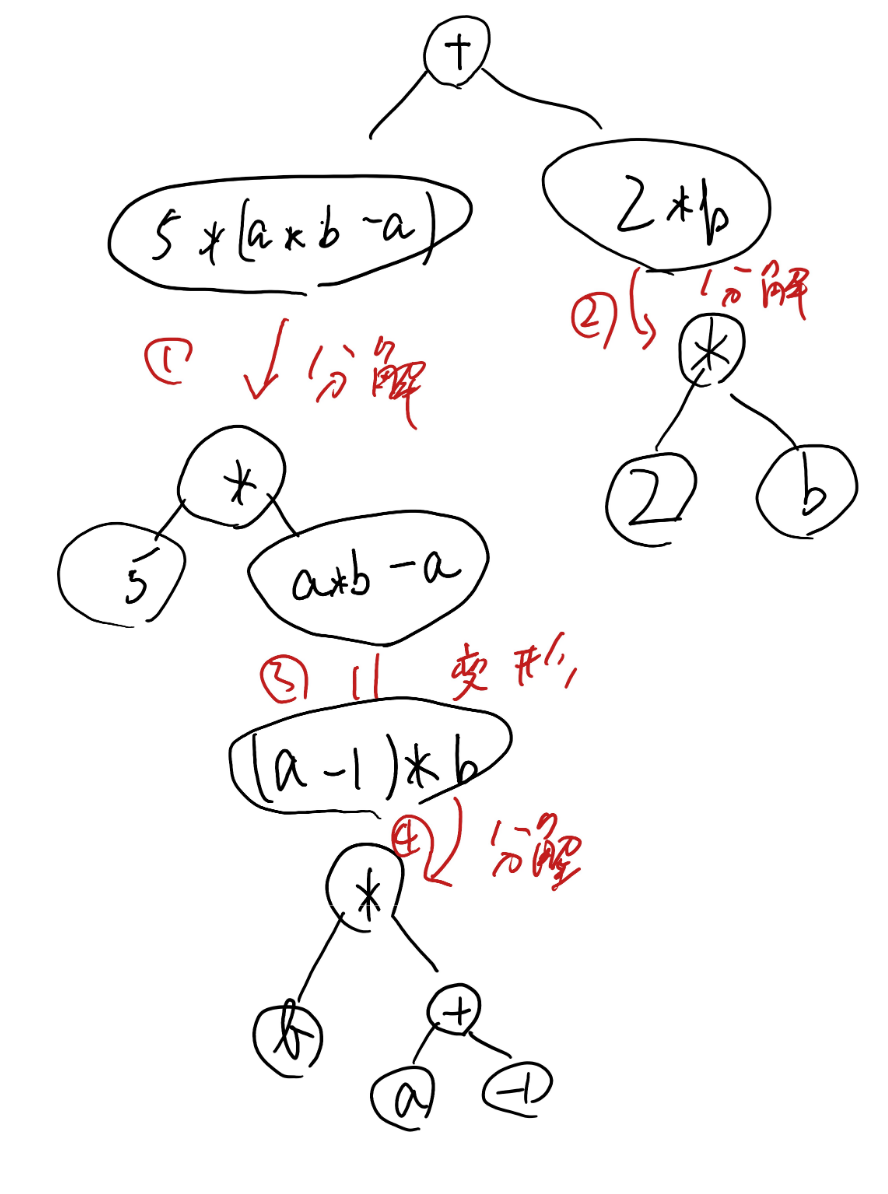 +
5*(a*b-a)
2*b
① 分解
② 分解
*
2
b
*
5
a*b-a
③ 变形
(a-1)*b
④ 分解
*
b
+
a
-1